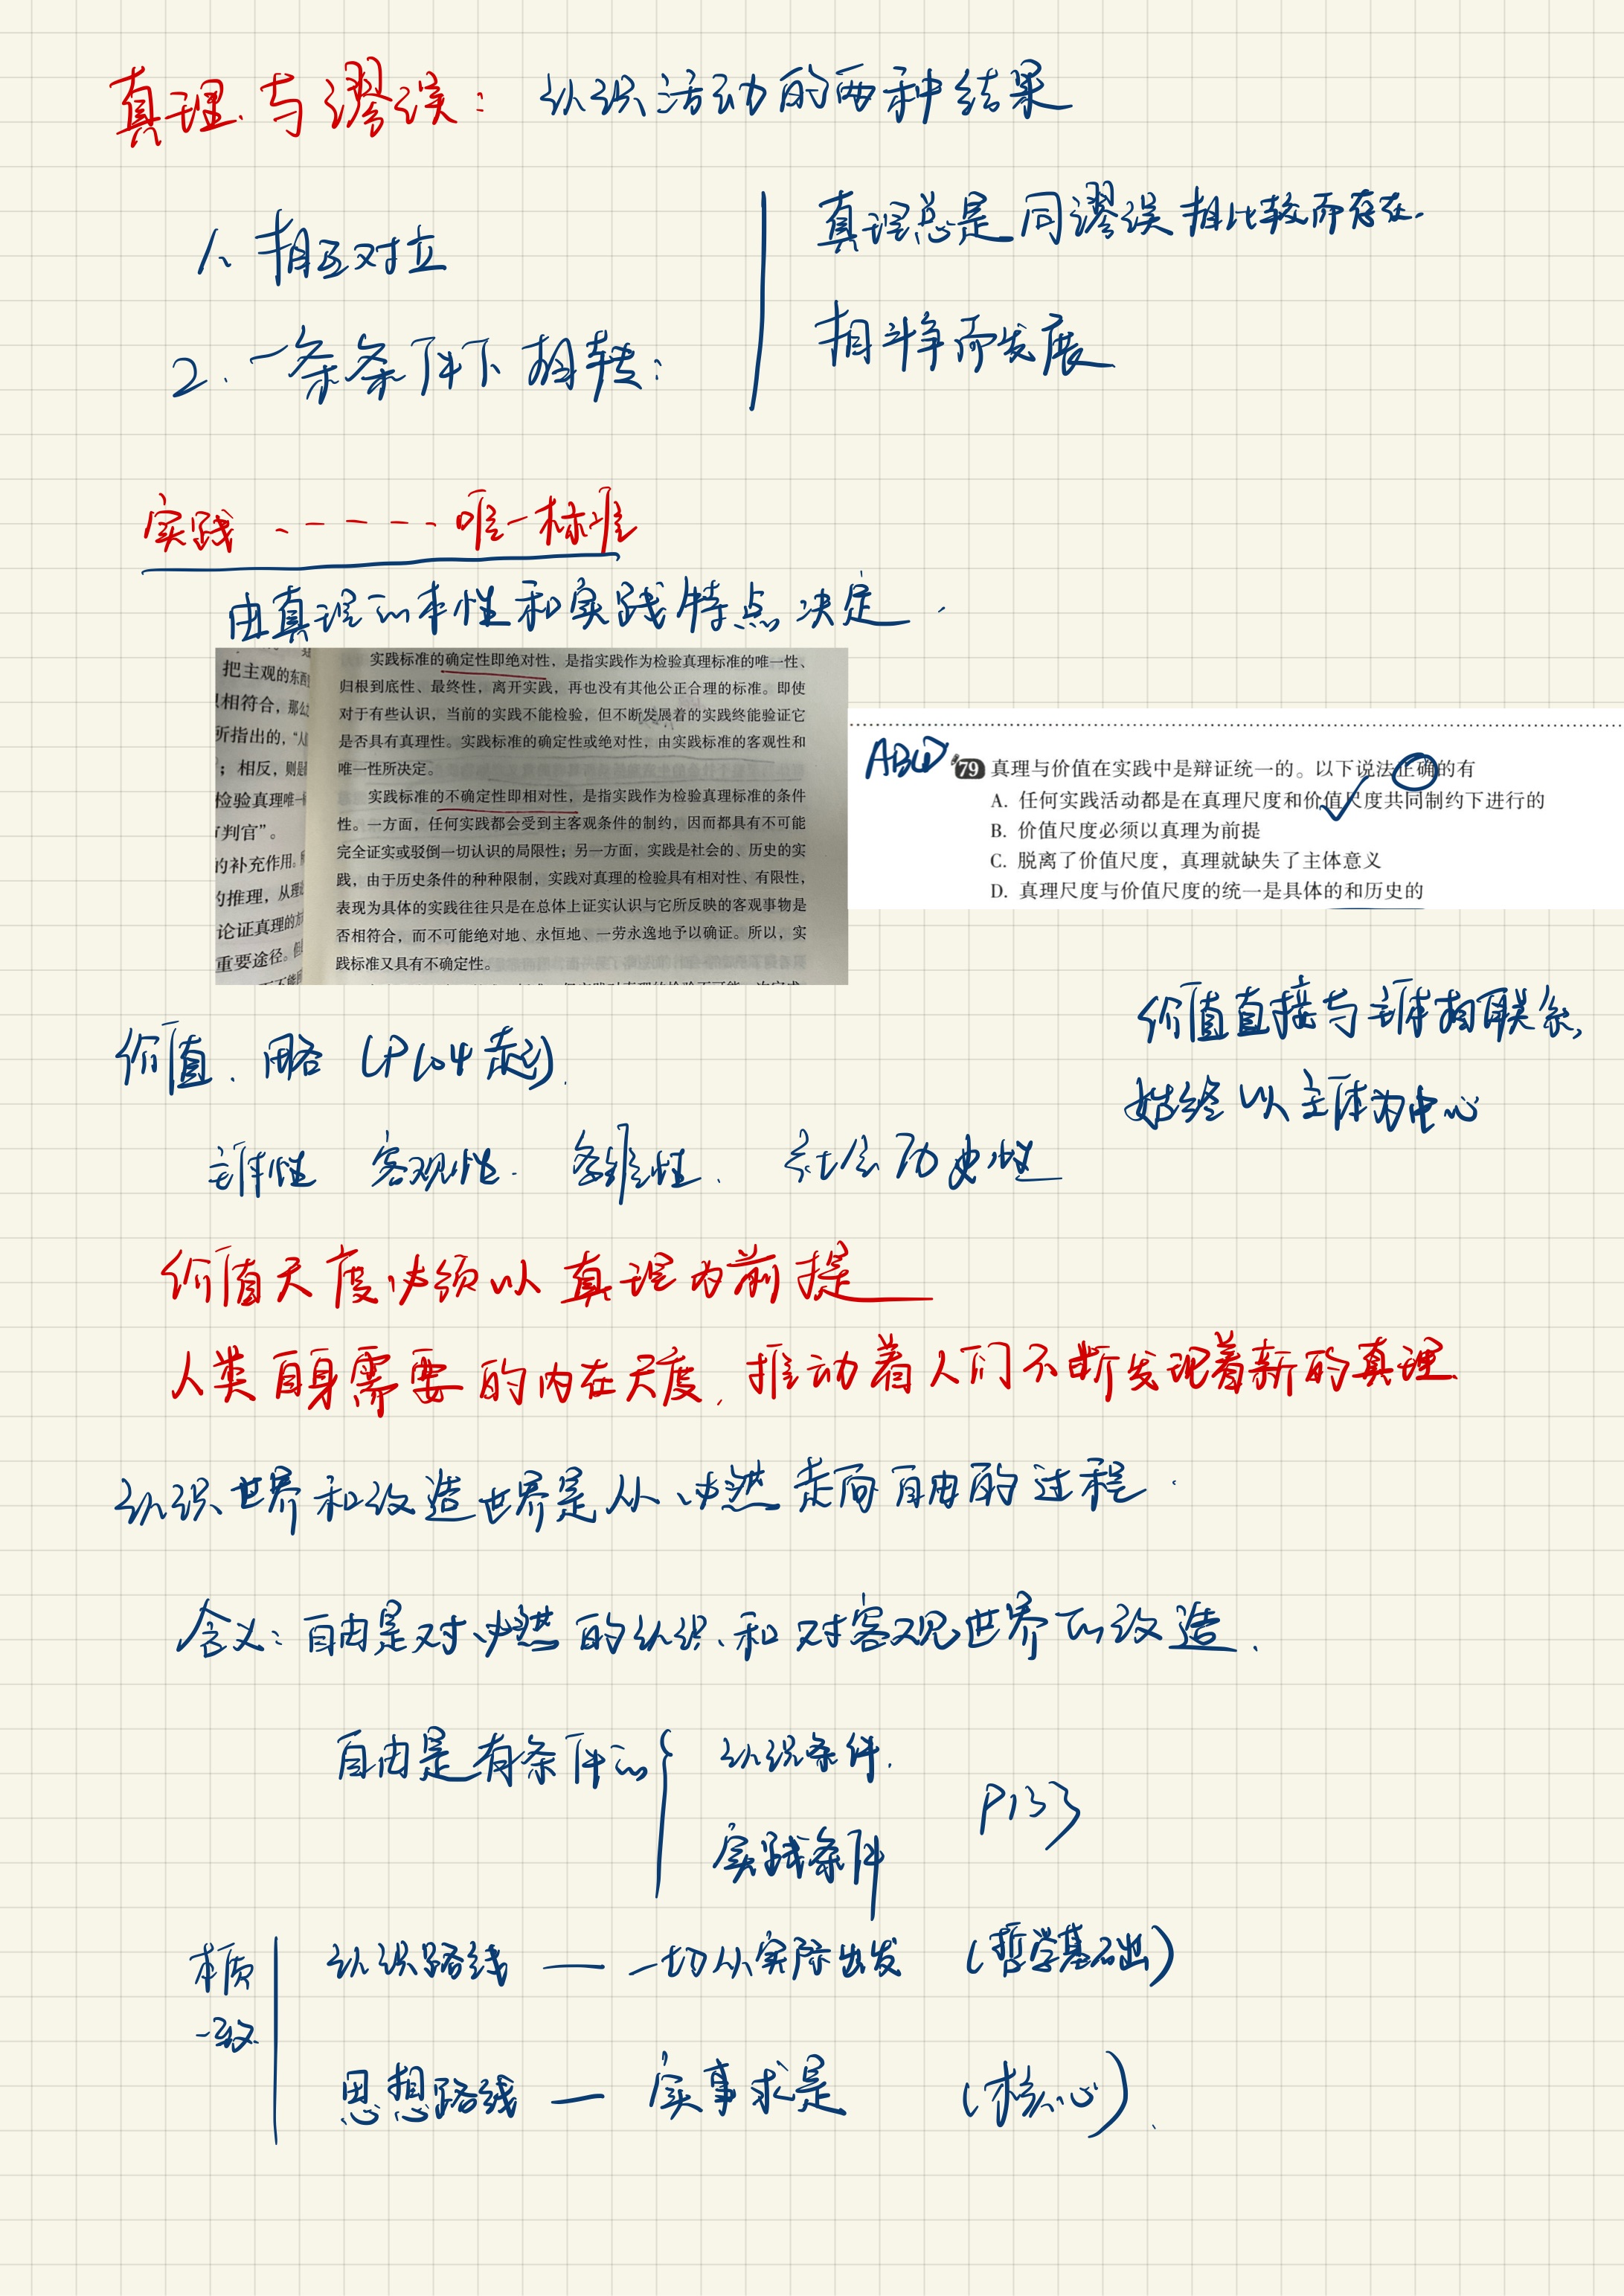 真理与谬误：认识活动的两种结果
1、相互对立
2. 一条条件下相转：
真理总是同谬误相比较而存在.
相斗争而发展
实践 ------ 唯一标准
由真理的本性和实践特点决定.
把主观的东西
相符合，那么
所指出的，“人
；相反，则是
检验真理唯一
判官”。
的补充作用。
的推理，从理
论证真理的方
重要途径。但
实践标准的确定性即绝对性，是指实践作为检验真理标准的唯一性、
归根到底性、最终性，离开实践，再也没有其他公正合理的标准。即使
对于有些认识，当前的实践不能检验，但不断发展着的实践终能验证它
是否具有真理性。实践标准的确定性或绝对性，由实践标准的客观性和
唯一性所决定。
实践标准的不确定性即相对性，是指实践作为检验真理标准的条件
性。一方面，任何实践都会受到主客观条件的制约，因而都具有不可能
完全证实或驳倒一切认识的局限性；另一方面，实践是社会的、历史的实
践，由于历史条件的种种限制，实践对真理的检验具有相对性、有限性，
表现为具体的实践往往只是在总体上证实认识与它所反映的客观事物是
否相符合，而不可能绝对地、永恒地、一劳永逸地予以确证。所以，实
践标准又具有不确定性。
ABCD
79 真理与价值在实践中是辩证统一的。以下说法正确的有
A. 任何实践活动都是在真理尺度和价值尺度共同制约下进行的
B. 价值尺度必须以真理为前提
C. 脱离了价值尺度，真理就缺失了主体意义
D. 真理尺度与价值尺度的统一是具体的和历史的
价值直接与主体相联系,
始终以主体为中心
价值、略 (P104起).
主体性 客观性. 多维性. 社会历史性
价值尺度必须以真理为前提
人类自身需要的内在尺度, 推动着人们不断发现着新的真理.
认识世界和改造世界是从必然走向自由的过程.
含义：自由是对必然的认识、和对客观世界的改造.
自由是有条件的
认识条件.
实践条件
P133
本质
一致.
认识路线 — 一切从实际出发 (哲学基础)
思想路线 — 实事求是 (核心).